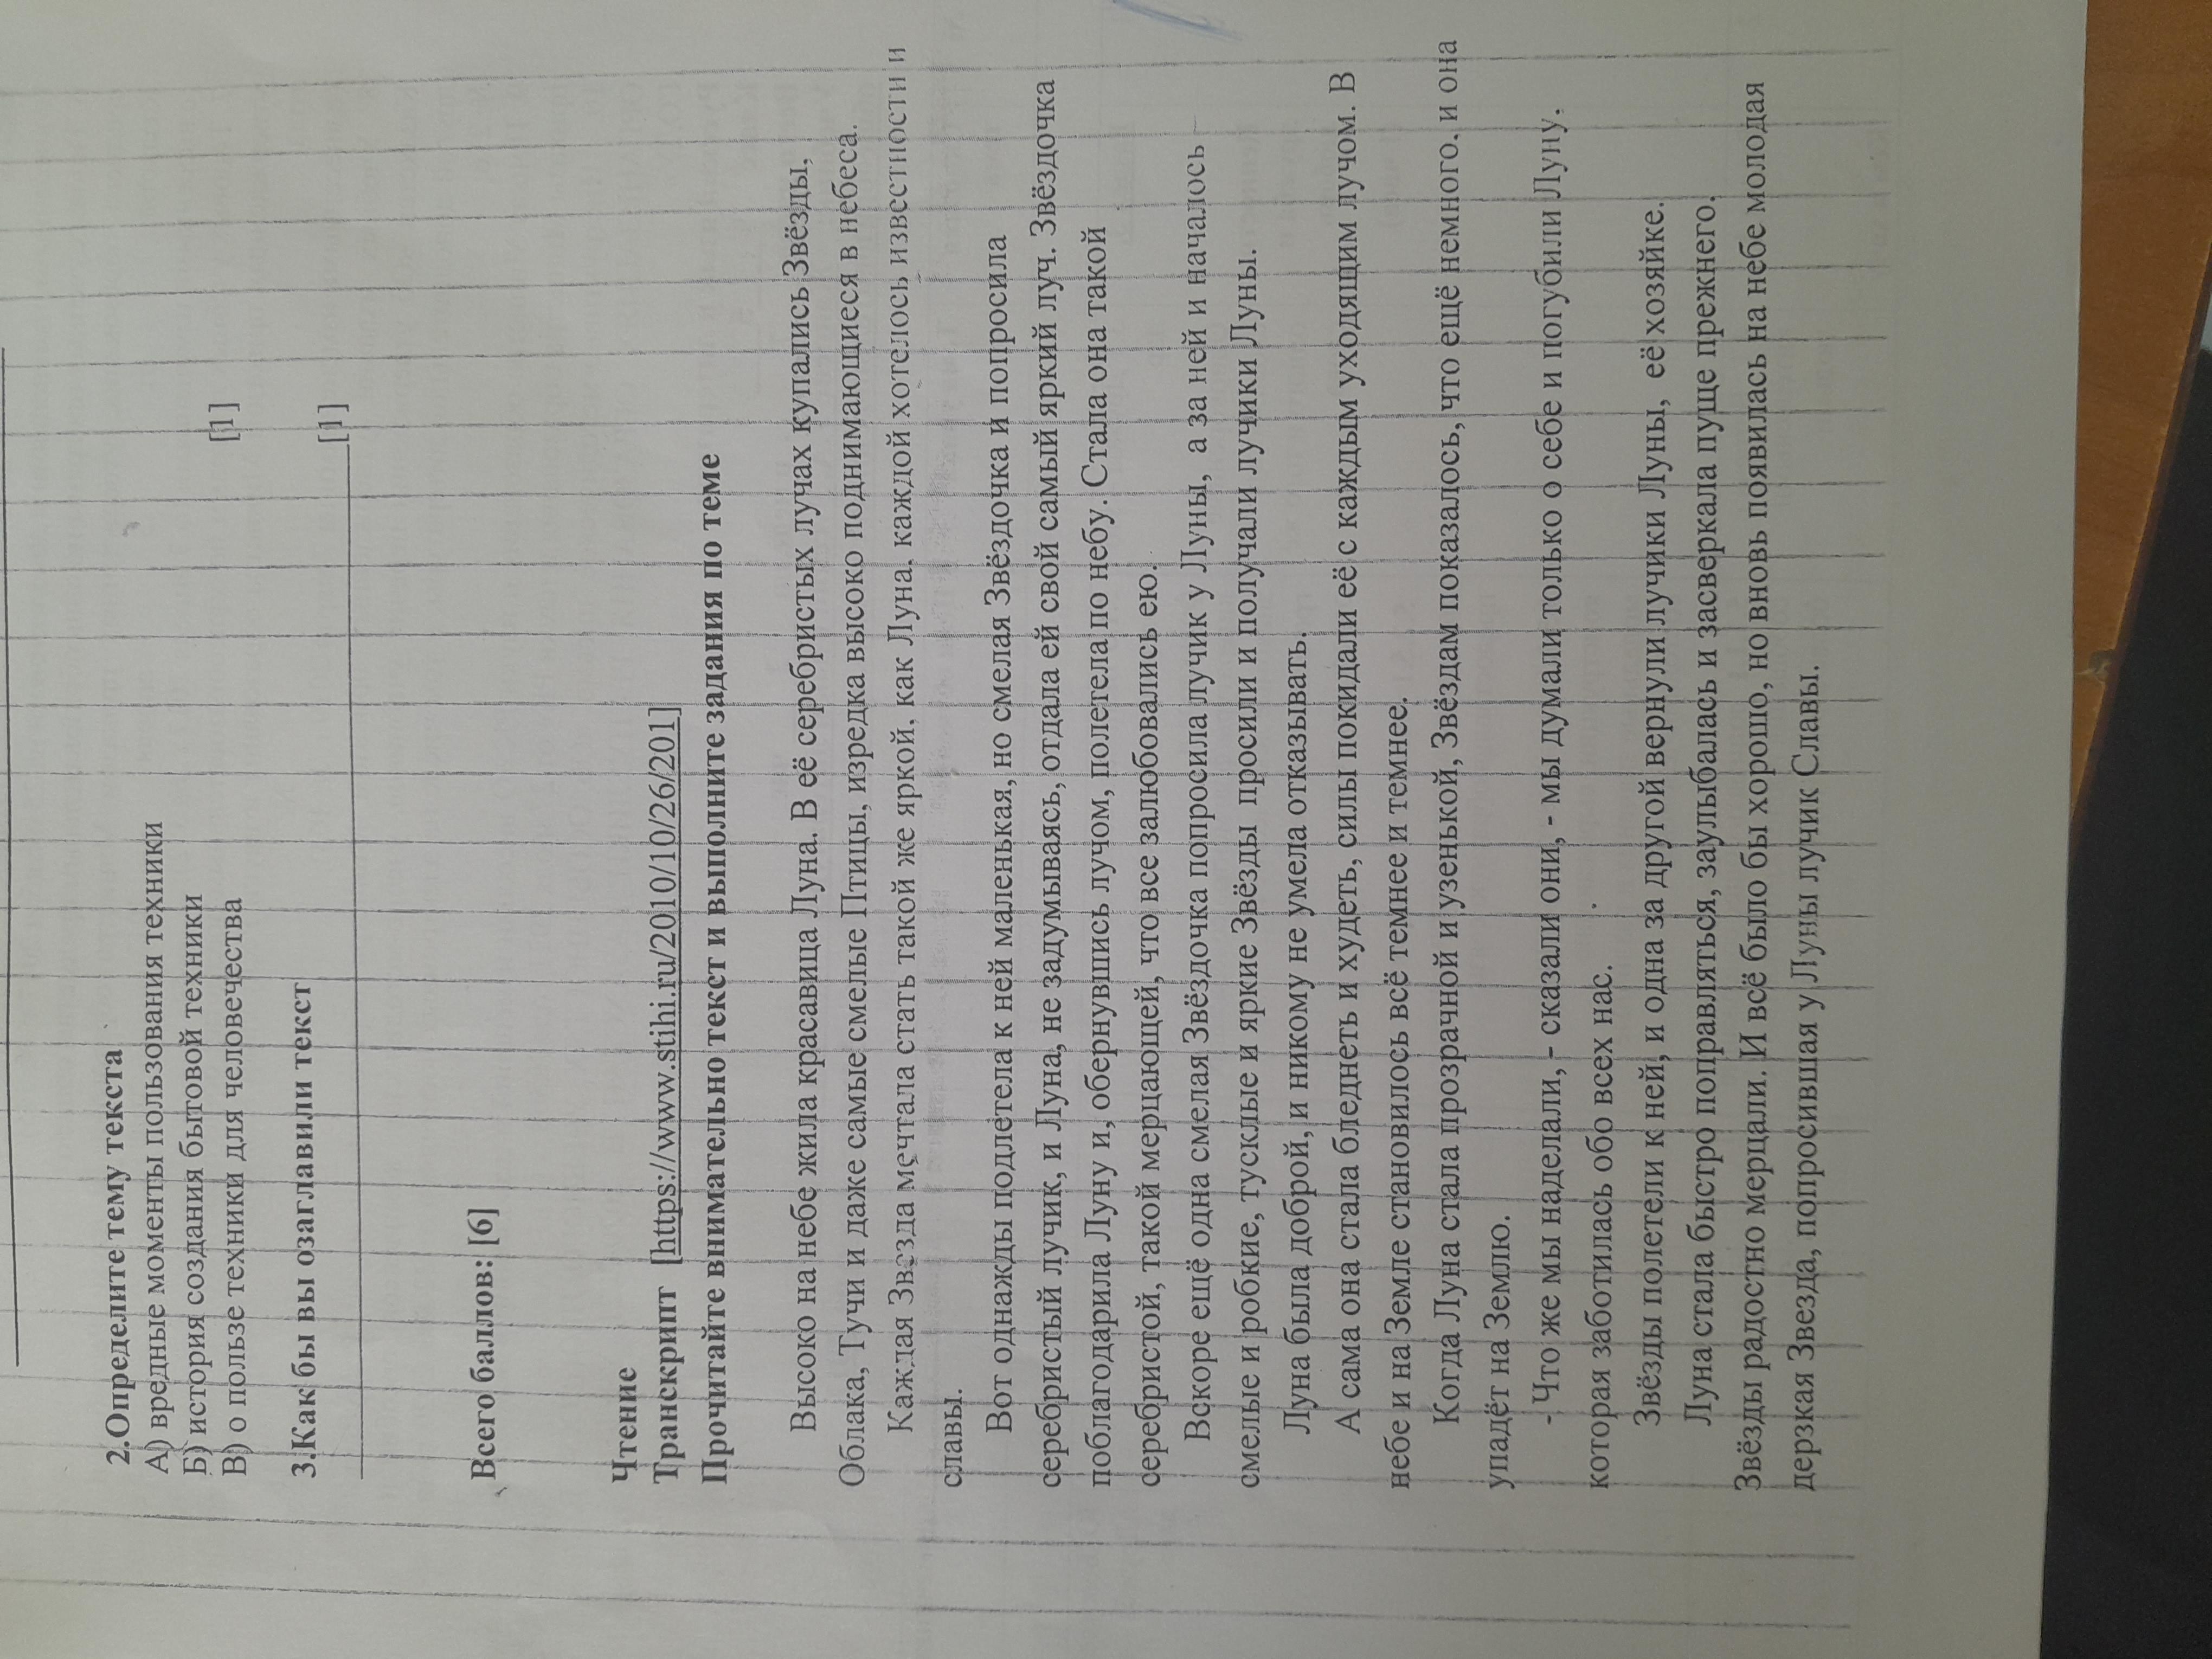 2.Определите тему текста
А) вредные моменты пользования техники
Б) история создания бытовой техники
В) о пользе техники для человечества [1]
3.Как бы вы озаглавили текст
[1]
Всего баллов: [6]
Чтение
Транскрипт [https://www.stihi.ru/2010/10/26/201]
Прочитайте внимательно текст и выполните задания по теме
Высоко на небе жила красавица Луна. В её серебристых лучах купались Звёзды,
Облака, Тучи и даже самые смелые Птицы, изредка высоко поднимающиеся в небеса.
Каждая Звезда мечтала стать такой же яркой, как Луна, каждой хотелось известности и
славы.
Вот однажды подлетела к ней маленькая, но смелая Звёздочка и попросила
серебристый лучик, и Луна, не задумываясь, отдала ей свой самый яркий луч. Звёздочка
поблагодарила Луну и, обернувшись лучом, полетела по небу. Стала она такой
серебристой, такой мерцающей, что все залюбовались ею.
Вскоре ещё одна смелая Звёздочка попросила лучик у Луны, а за ней и началось
смелые и робкие, тусклые и яркие Звёзды просили и получали лучики Луны.
Луна была доброй, и никому не умела отказывать.
А сама она стала бледнеть и худеть, силы покидали её с каждым уходящим лучом. В
небе и на Земле становилось всё темнее и темнее.
Когда Луна стала прозрачной и узенькой, Звёздам показалось, что ещё немного, и она
упадёт на Землю.
- Что же мы наделали, - сказали они, - мы думали только о себе и погубили Луну,
которая заботилась обо всех нас.
Звёзды полетели к ней, и одна за другой вернули лучики Луны, её хозяйке.
Луна стала быстро поправляться, заулыбалась и засверкала пуще прежнего.
Звёзды радостно мерцали. И всё было бы хорошо, но вновь появилась на небе молодая
дерзкая Звезда, попросившая у Луны лучик Славы.